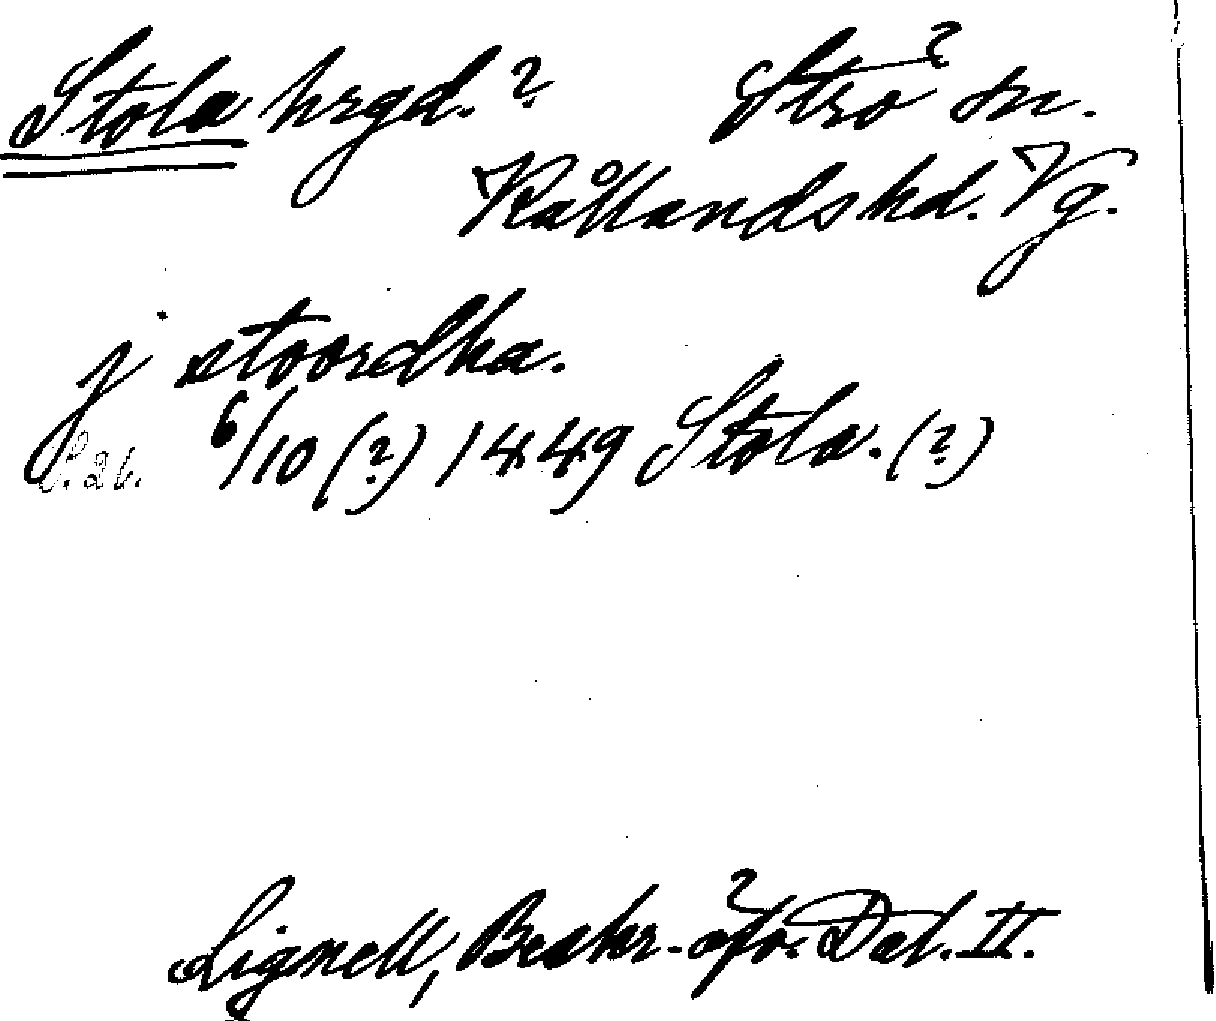 Stola hrgd.? Strö sn.
Kållands hd. Vg.
j stoordha.
S. 26. 6/10 (?) 1449 Stola. (?)
Lignell, Beskr. öfv. Dal. II.